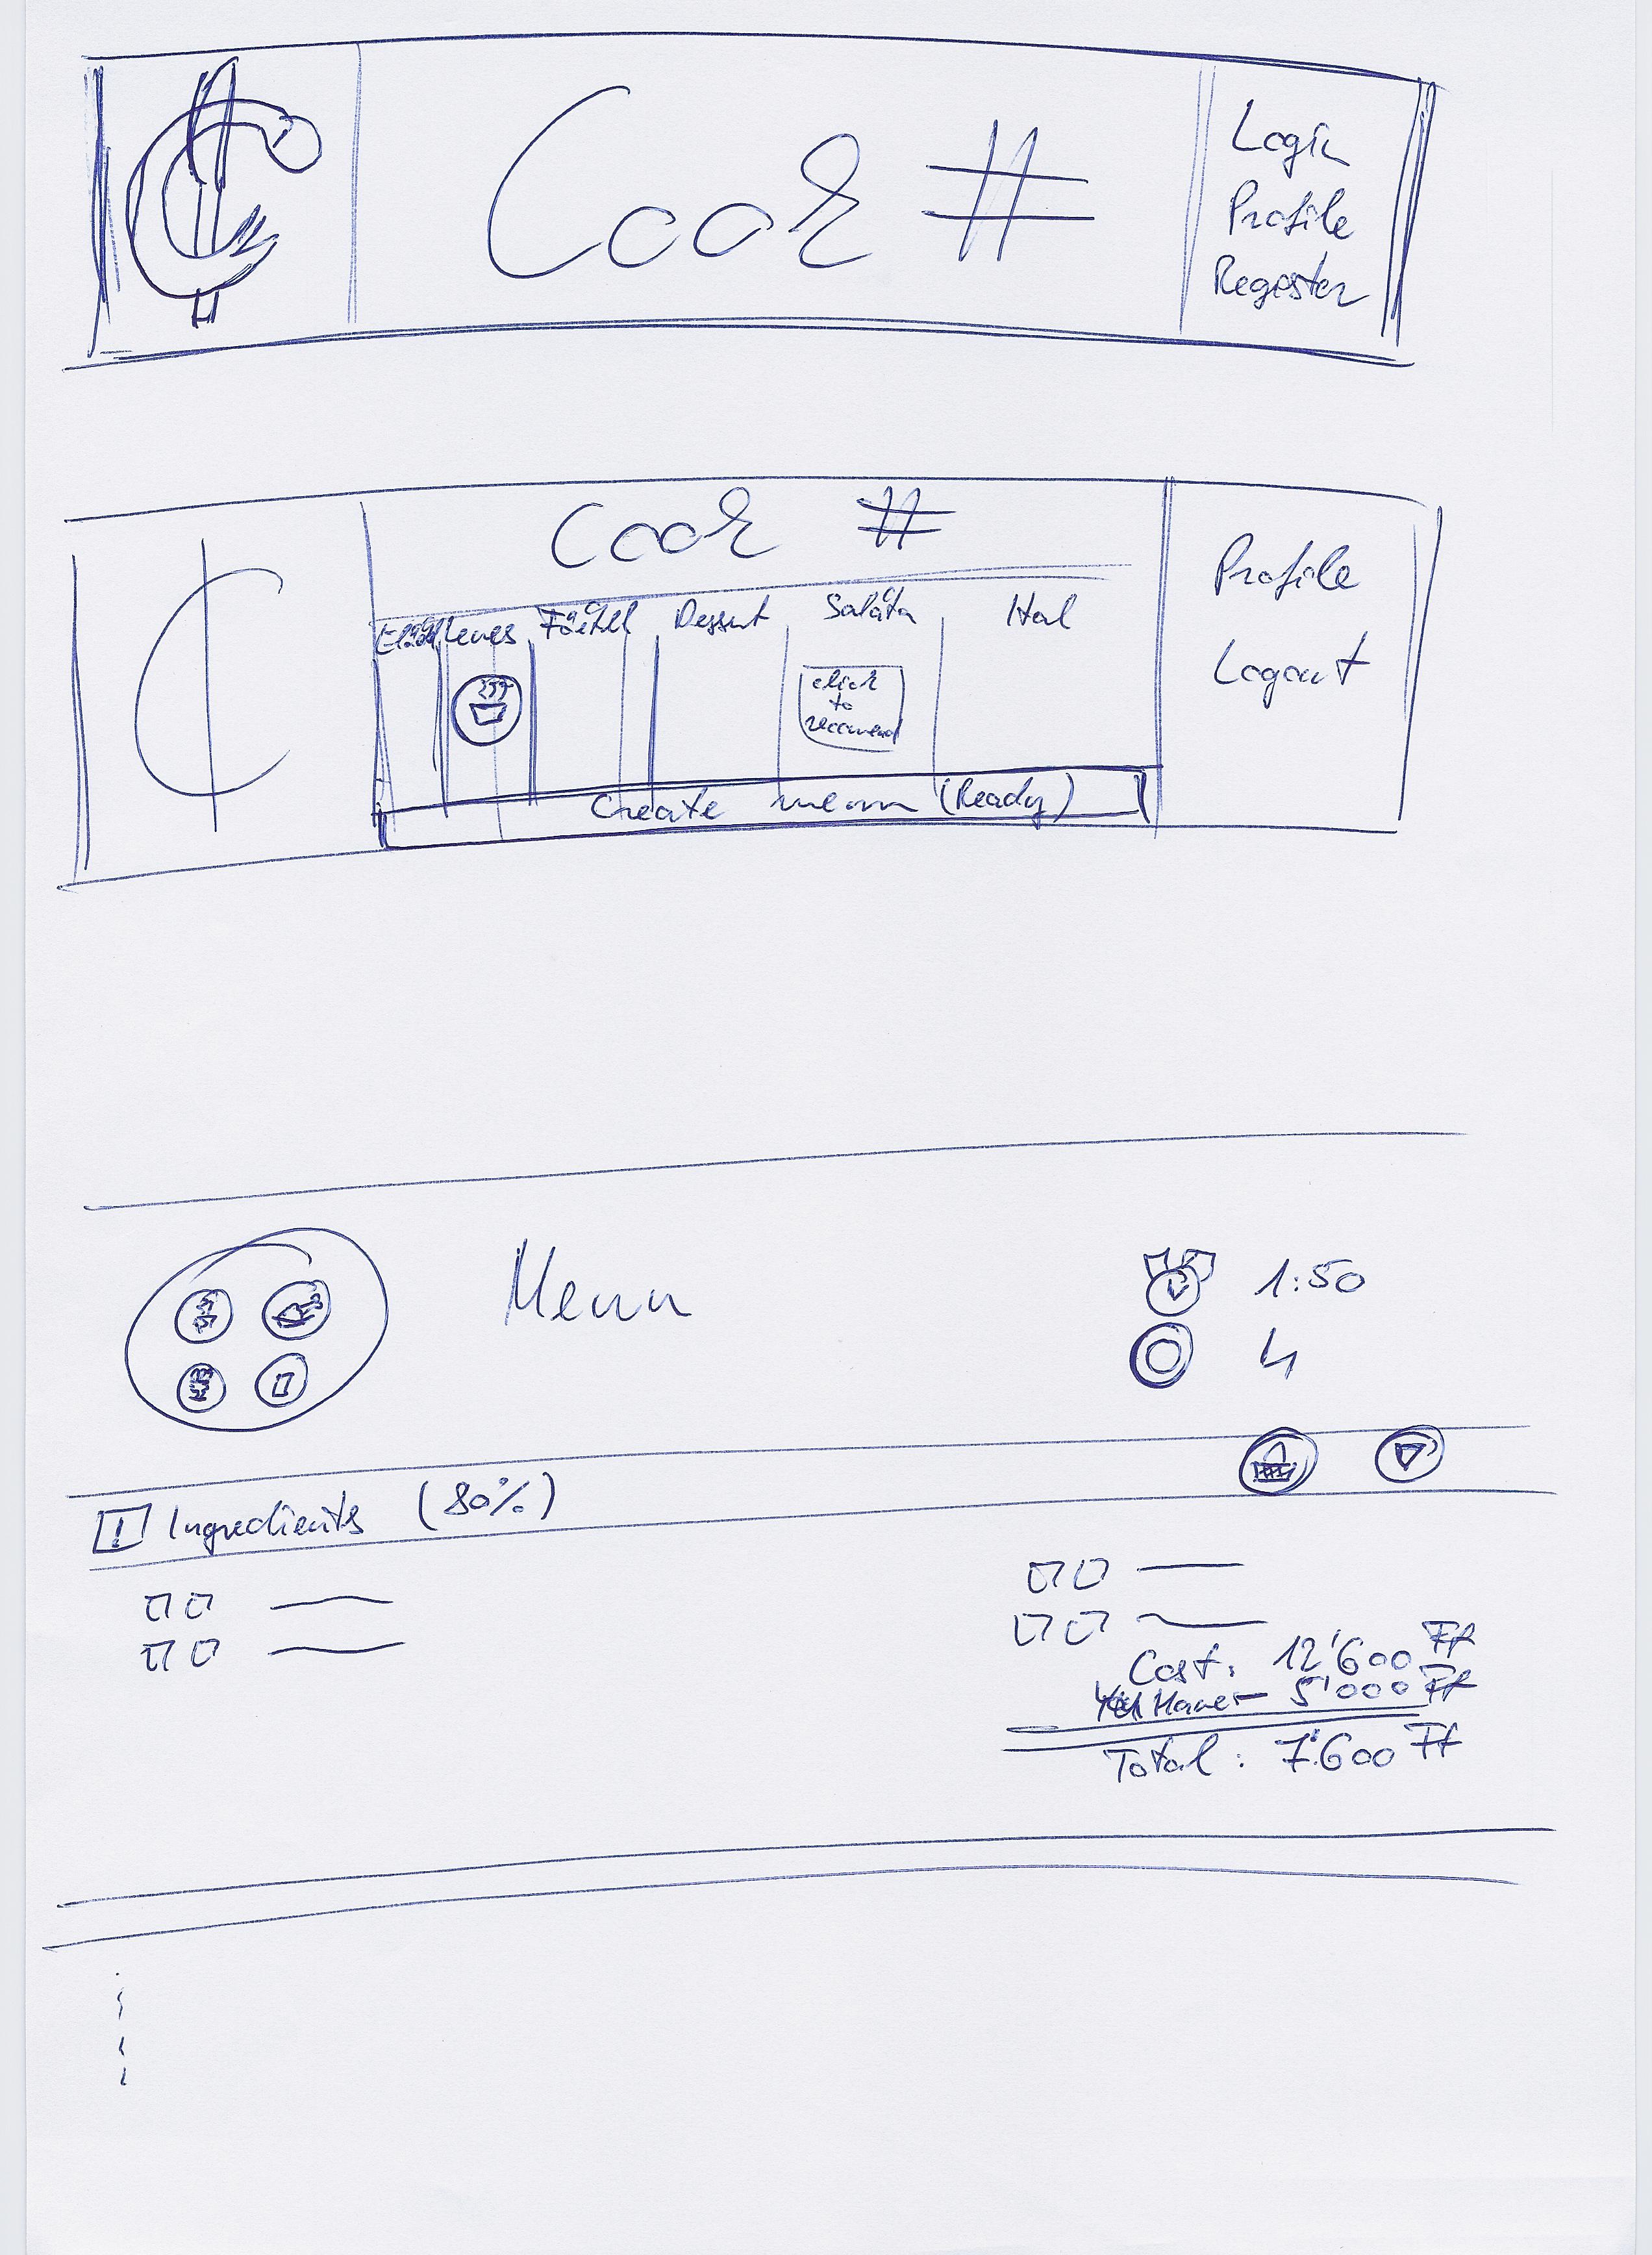 Cook #
Login
Profile
Register
Cook #
Előétel Leves Főétel Dessert Saláta Ital
click
to
reccomend
Create menu (Ready)
Profile
Logout
Menu
1:50
4
! Ingredients (80%)
Cost: 12'600 Ft
You Have: - 5'000 Ft
Total: 7'600 Ft